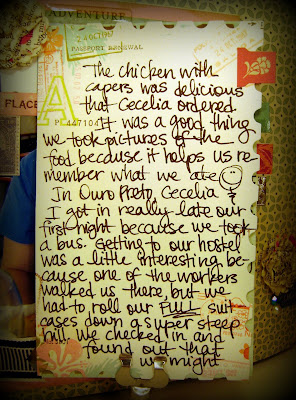 ADVENTURE
PASSPORT RENEWAL
A
PLACE
P 447104
The chicken with
capers was delicious
that Cecelia ordered.
It was a good thing
we took pictures of the
food because it helps us re-
member what we ate
In Ouro Preto, Cecelia
I got in really late our
first night because we took
a bus. Getting to our hostel
was a little interesting be-
cause one of the workers
walked us there, but we
had to roll our FULL suit
cases down a super steep
hill. We checked in and
found out that
we might